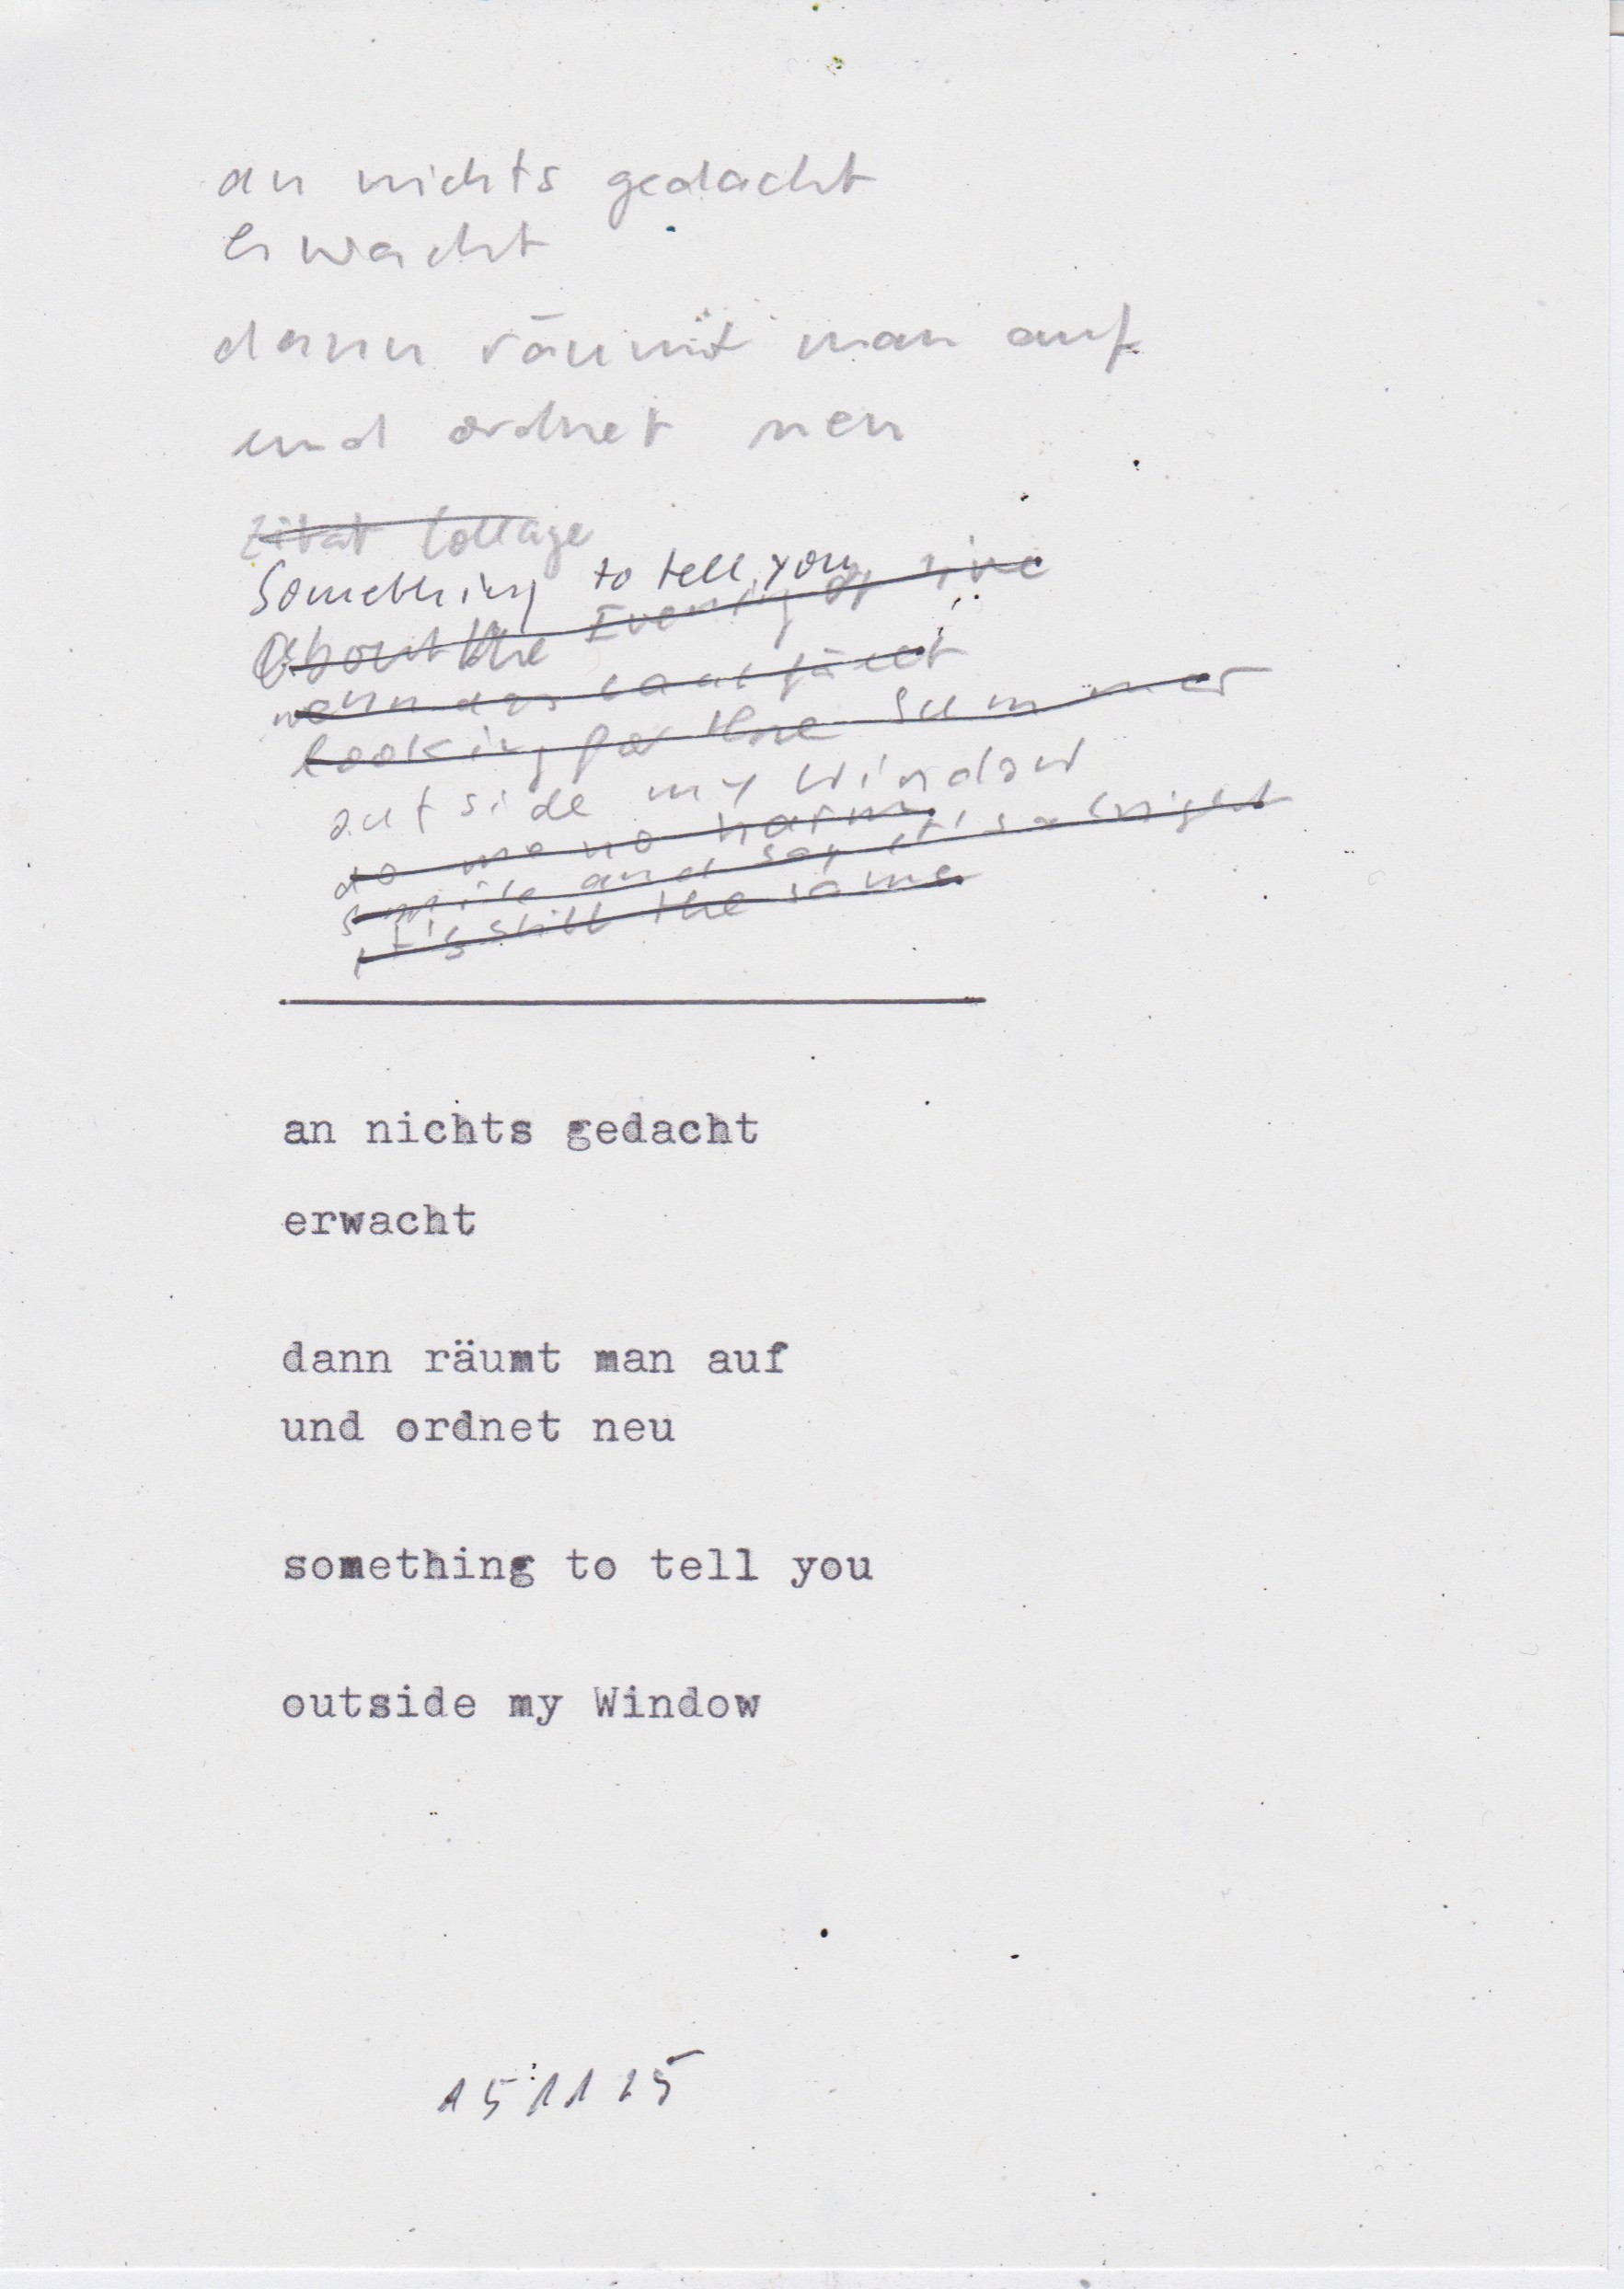 an nichts gedacht
erwacht
dann räumt man auf
und ordnet neu
Zitat Collage
Something to tell you
About the Evening of
wenn das Laub fällt
looking for the Summer
outside my Window
do me no harm
smile and say it's alright
it's still the same
an nichts gedacht
erwacht
dann räumt man auf
und ordnet neu
something to tell you
outside my Window
15 11 25